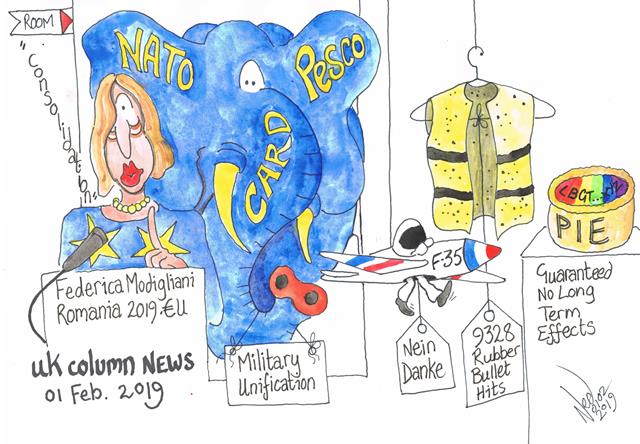 ROOM
"Consolidation"
NATO
PESCO
CARD
F-35
LBGT...
PIE
Federica Modigliani
Romania 2019 €U
UK COLUMN NEWS
01 Feb. 2019
Military
Unification
Nein
Danke
9328
Rubber
Bullet
Hits
Guaranteed
No Long
Term
Effects
2019